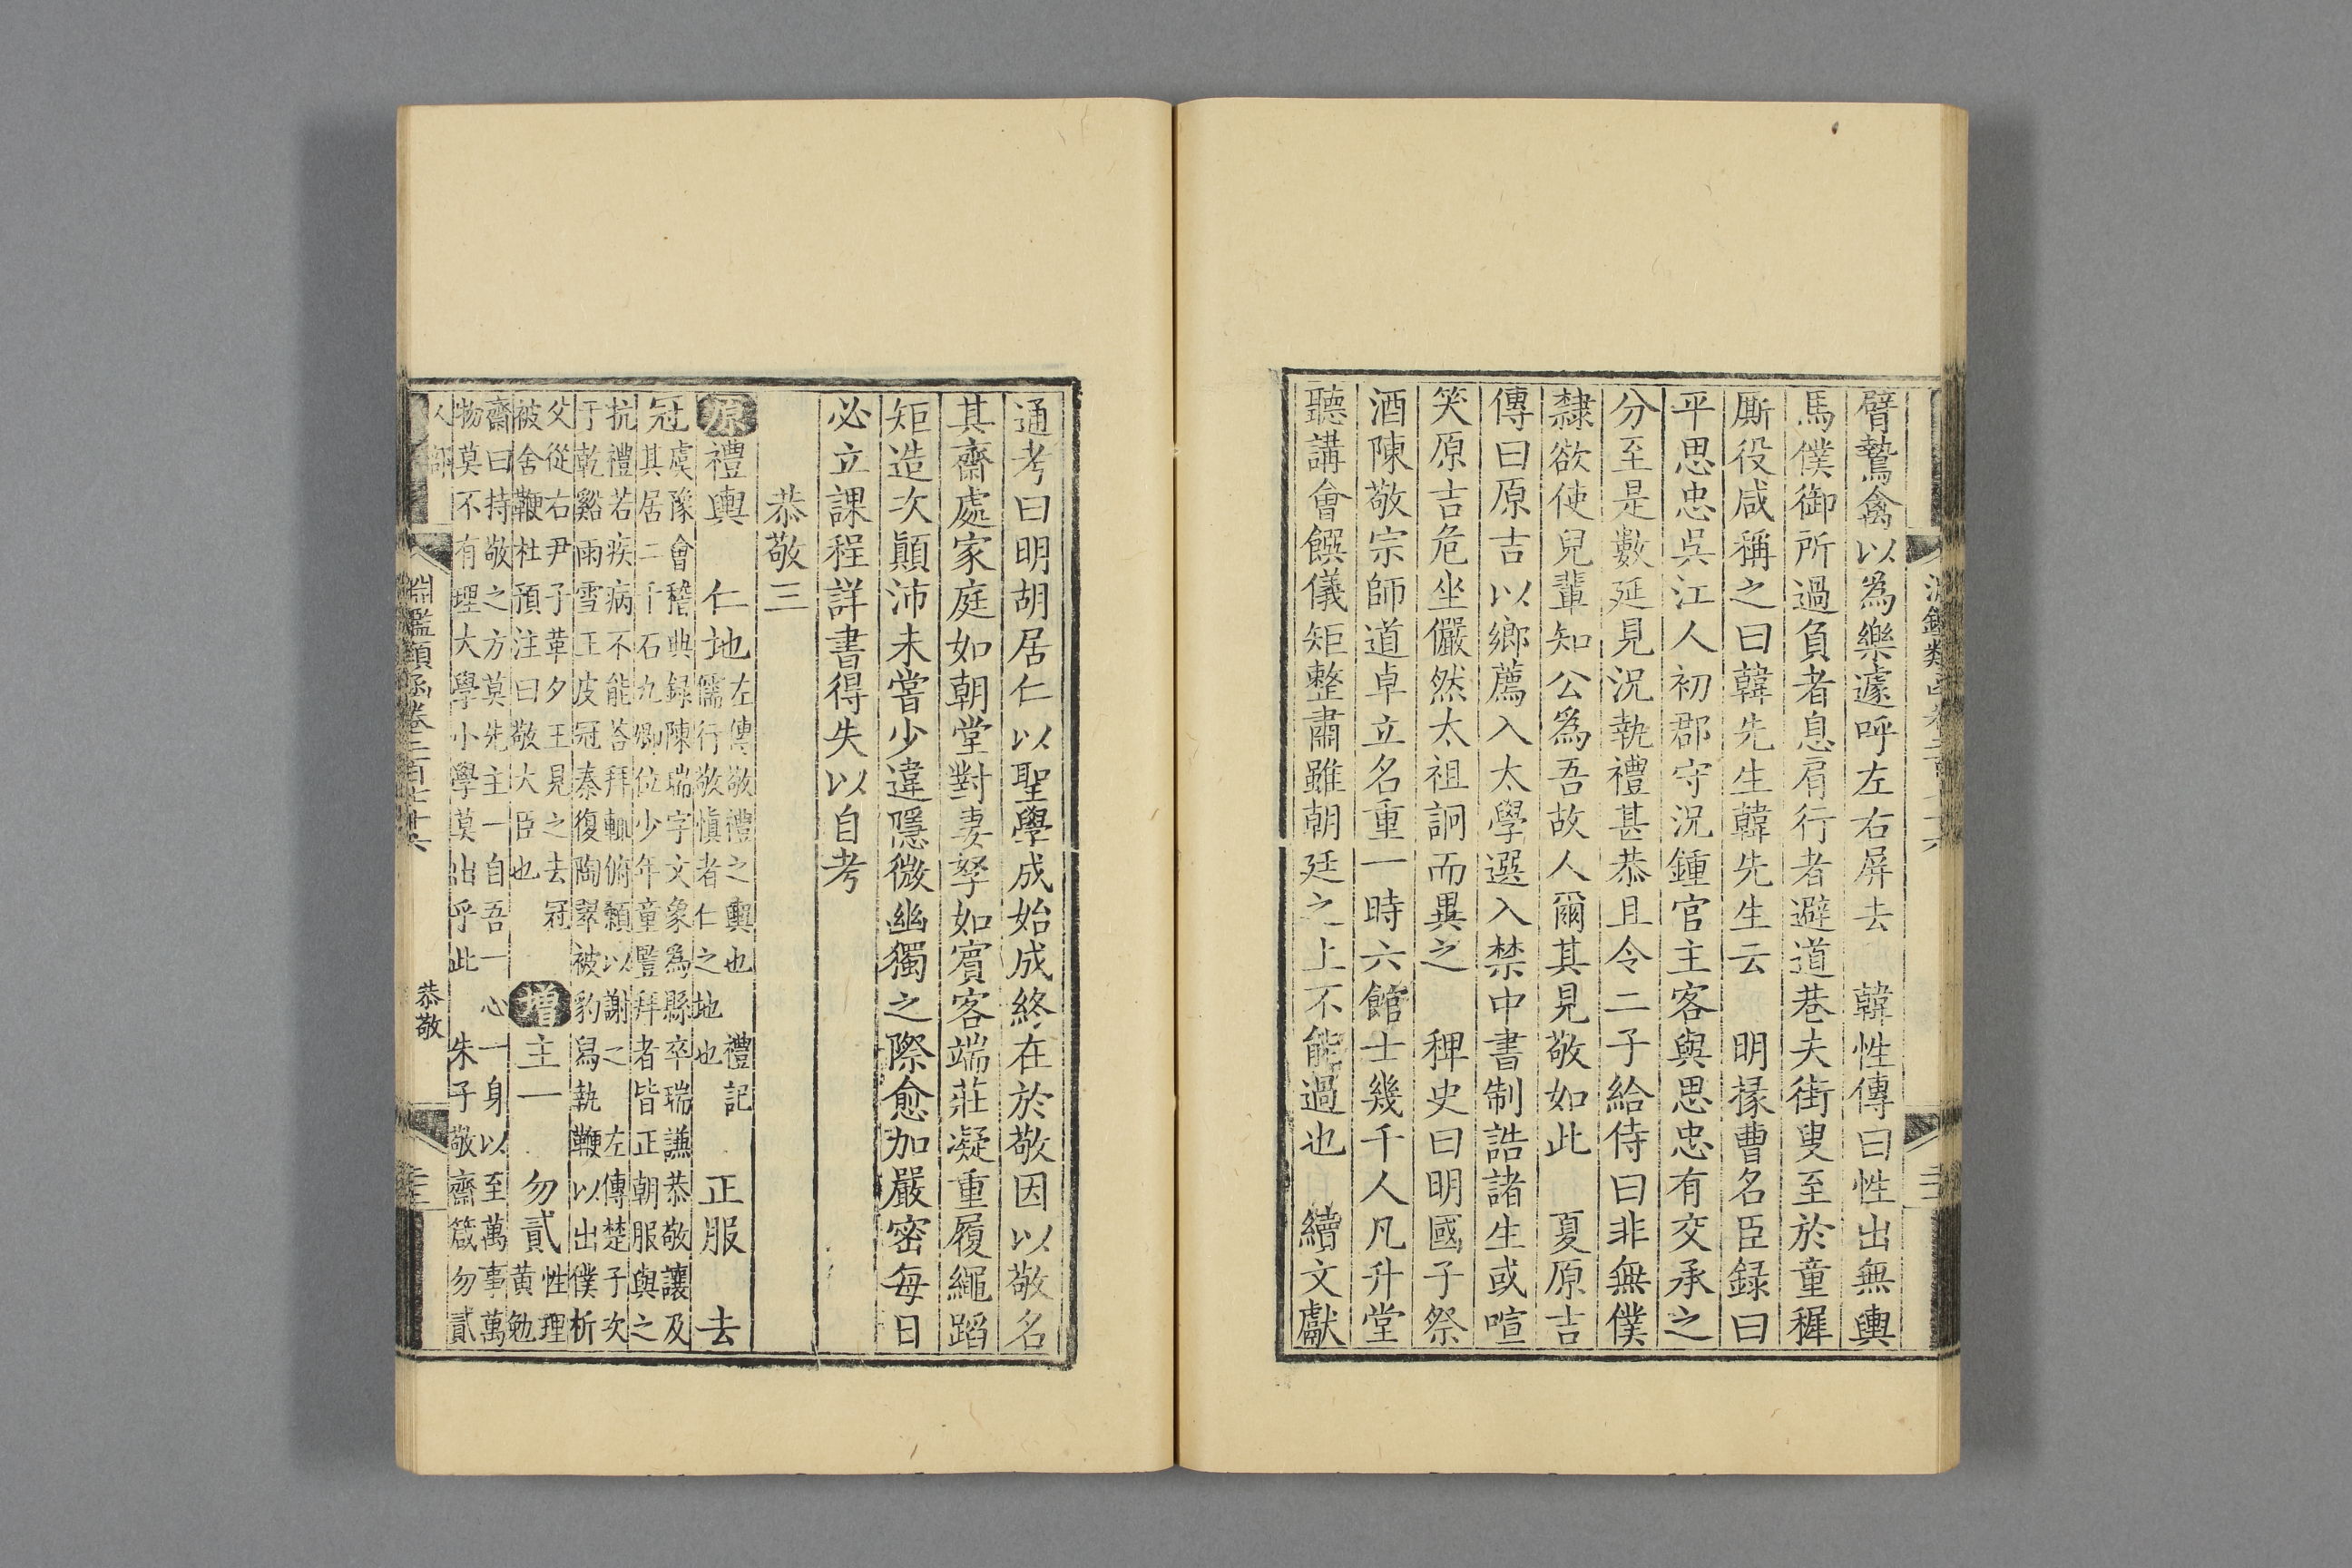 臂鷙禽以為樂遽呼左右屏去　韓性傳曰性出無輿
馬僕御所過負者息肩行者避道巷夫街叟至於童穉
厮役咸稱之曰韓先生韓先生云　明掾曹名臣録曰
平思忠吳江人初郡守況鍾官主客與思忠有交承之
分至是數延見況執禮甚恭且令二子給侍曰非無僕
隸欲使兒輩知公為吾故人爾其見敬如此　夏原吉
傳曰原吉以鄉薦入太學選入禁中書制誥諸生或喧
笑原吉危坐儼然太祖詗而異之　稗史曰明國子祭
酒陳敬宗師道卓立名重一時六館士幾千人凡升堂
聽講會饌儀矩整肅雖朝廷之上不能過也　續文獻
通考曰明胡居仁以聖學成始成終在於敬因以敬名
其齋處家庭如朝堂對妻孥如賓客端莊凝重履繩蹈
矩造次顛沛未嘗少違隱微幽獨之際愈加嚴密每日
必立課程詳書得失以自考
恭敬三
原禮輿　仁地　左傳敬禮之輿也　禮記
儒行敬慎者仁之地也　正服　去
冠　虞豫會稽典録陳瑞字文象為縣卒瑞謙恭敬讓及
其居二千石九卿位少年童豎拜者皆正朝服與之
抗禮若疾病不能荅拜輒俯頼以謝之　左傳楚子次
于乾谿雨雪王皮冠秦復陶翠被豹舄執鞭以出僕析
父從右尹子革夕王見之去冠
被舍鞭杜預注曰敬大臣也　增主一　勿貳　性理
黄勉
齋曰持敬之方莫先主一自吾一心一身以至萬事萬
物莫不有理大學小學莫出乎此　朱子敬齋箴勿貳
人部
淵鑑類函卷二百七十六
恭敬